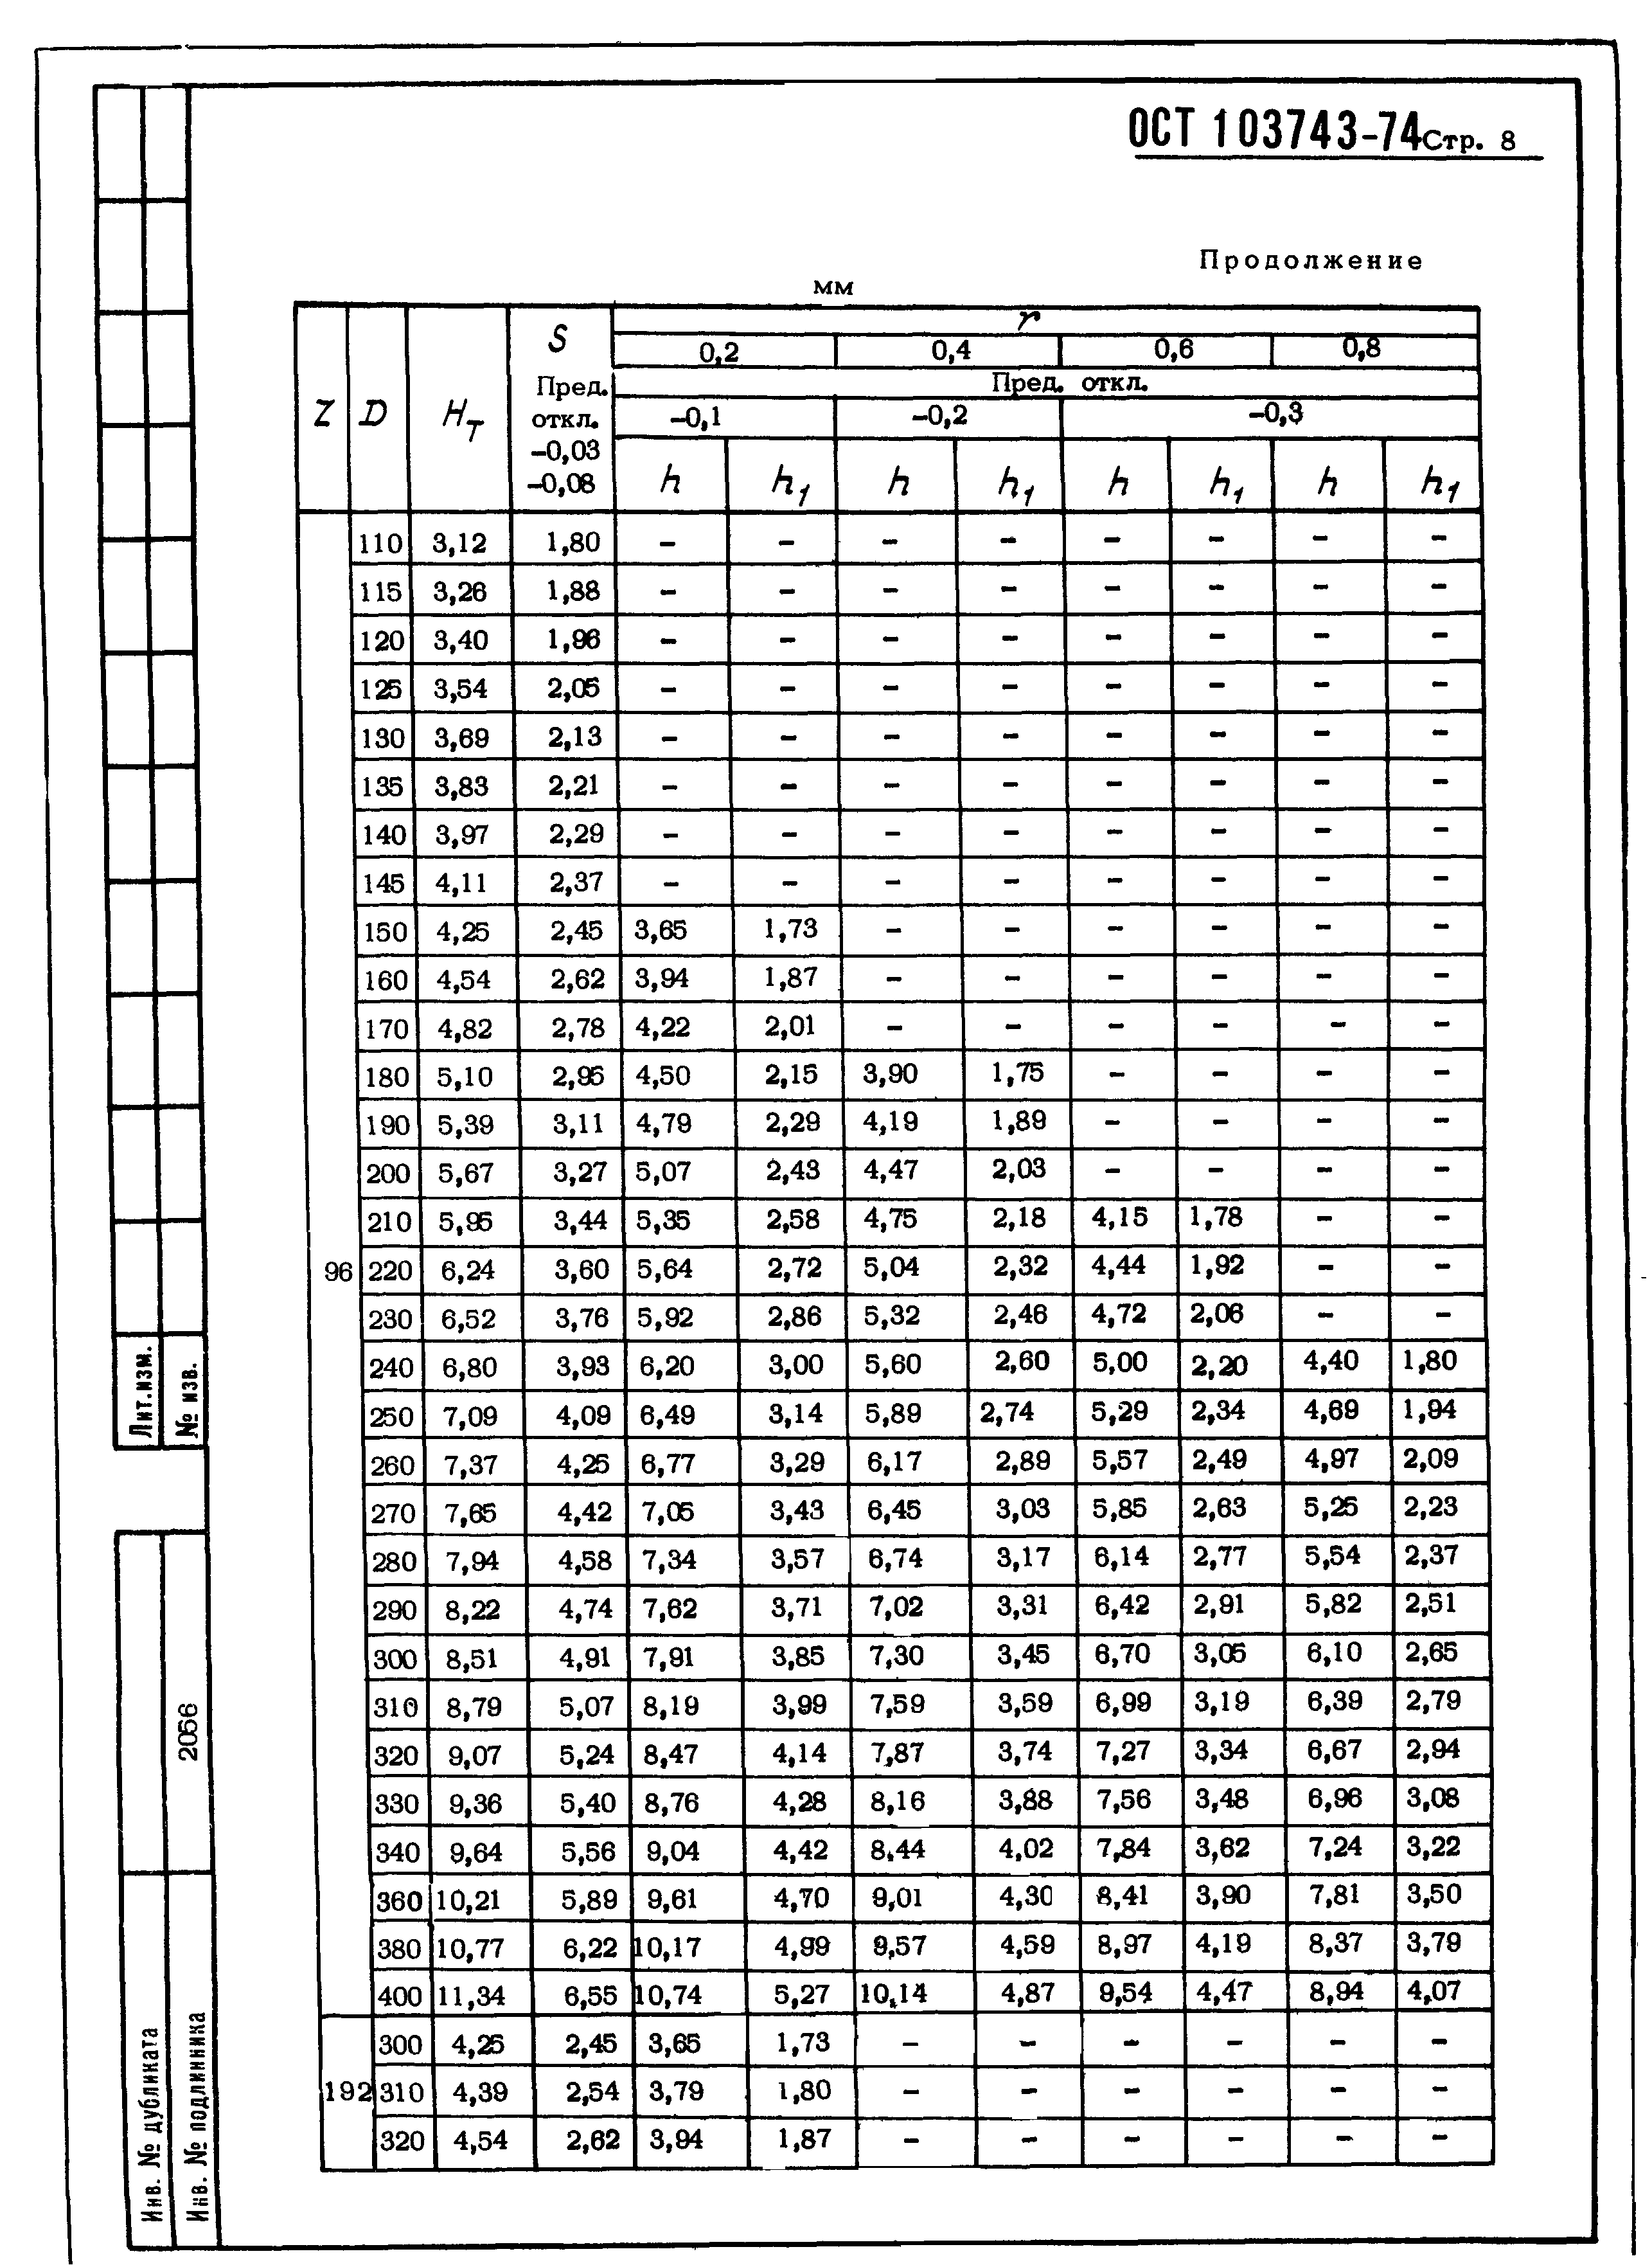 ОСТ 1 03743-74 Стр. 8
Продолжение
мм
Z D Hт S Пред. откл. -0,03 -0,08 r
0,2 0,4 0,6 0,8
Пред. откл.
-0,1 -0,2 -0,3
h h₁ h h₁ h h₁ h h₁
110 3,12 1,80 – – – – – – – –
115 3,26 1,88 – – – – – – – –
120 3,40 1,96 – – – – – – – –
125 3,54 2,05 – – – – – – – –
130 3,69 2,13 – – – – – – – –
135 3,83 2,21 – – – – – – – –
140 3,97 2,29 – – – – – – – –
145 4,11 2,37 – – – – – – – –
150 4,25 2,45 3,65 1,73 – – – – – –
160 4,54 2,62 3,94 1,87 – – – – – –
170 4,82 2,78 4,22 2,01 – – – – – –
180 5,10 2,95 4,50 2,15 3,90 1,75 – – – –
190 5,39 3,11 4,79 2,29 4,19 1,89 – – – –
200 5,67 3,27 5,07 2,43 4,47 2,03 – – – –
210 5,95 3,44 5,35 2,58 4,75 2,18 4,15 1,78 – –
96 220 6,24 3,60 5,64 2,72 5,04 2,32 4,44 1,92 – –
230 6,52 3,76 5,92 2,86 5,32 2,46 4,72 2,06 – –
240 6,80 3,93 6,20 3,00 5,60 2,60 5,00 2,20 4,40 1,80
250 7,09 4,09 6,49 3,14 5,89 2,74 5,29 2,34 4,69 1,94
260 7,37 4,25 6,77 3,29 6,17 2,89 5,57 2,49 4,97 2,09
270 7,65 4,42 7,05 3,43 6,45 3,03 5,85 2,63 5,25 2,23
280 7,94 4,58 7,34 3,57 6,74 3,17 6,14 2,77 5,54 2,37
290 8,22 4,74 7,62 3,71 7,02 3,31 6,42 2,91 5,82 2,51
300 8,51 4,91 7,91 3,85 7,30 3,45 6,70 3,05 6,10 2,65
310 8,79 5,07 8,19 3,99 7,59 3,59 6,99 3,19 6,39 2,79
320 9,07 5,24 8,47 4,14 7,87 3,74 7,27 3,34 6,67 2,94
330 9,36 5,40 8,76 4,28 8,16 3,88 7,56 3,48 6,96 3,08
340 9,64 5,56 9,04 4,42 8,44 4,02 7,84 3,62 7,24 3,22
360 10,21 5,89 9,61 4,70 9,01 4,30 8,41 3,90 7,81 3,50
380 10,77 6,22 10,17 4,99 9,57 4,59 8,97 4,19 8,37 3,79
400 11,34 6,55 10,74 5,27 10,14 4,87 9,54 4,47 8,94 4,07
300 4,25 2,45 3,65 1,73 – – – – – –
192 310 4,39 2,54 3,79 1,80 – – – – – –
320 4,54 2,62 3,94 1,87 – – – – – –
Лит.изм.
№ изв.
2056
Инв. № дубликата
Инв. № подлинника